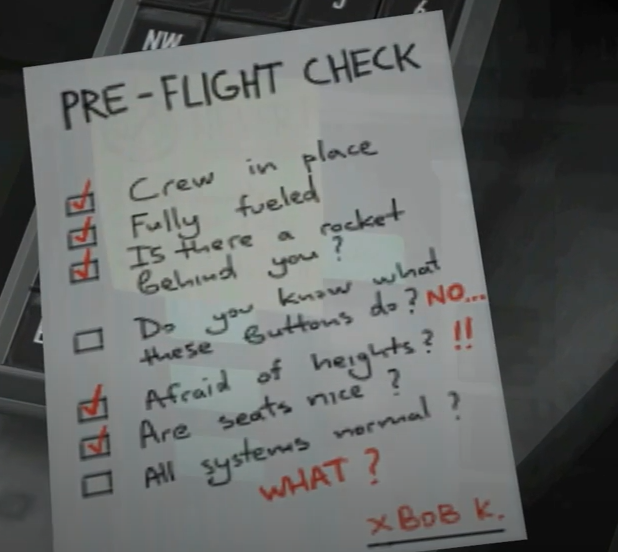 NW
PRE-FLIGHT CHECK
Crew in place
Fully fueled
Is there a rocket
Behind you?
Do you know what
these Buttons do? NO...
Afraid of heights? !!
Are seats nice?
All systems normal?
WHAT?
x BOB K.